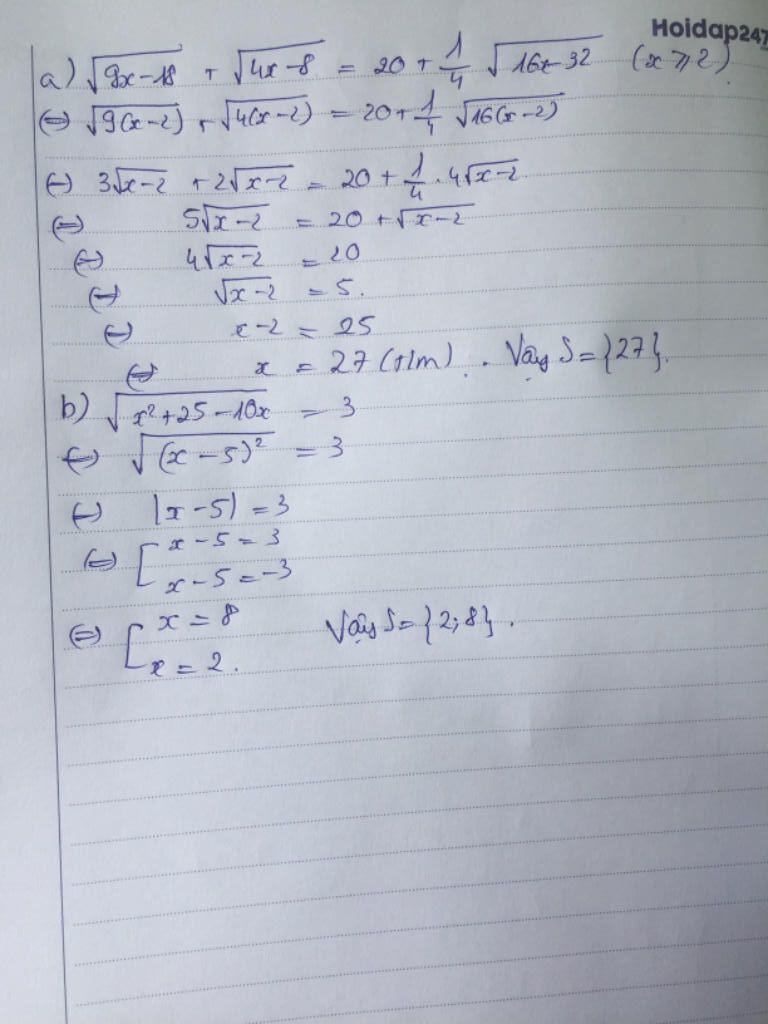 Hoidap247
a) √(9x-18) + √(4x-8) = 20 + 1/4 √(16x-32) (x ⩾ 2)
⇔ √(9(x-2)) + √(4(x-2)) = 20 + 1/4 √(16(x-2))
⇔ 3√(x-2) + 2√(x-2) = 20 + 1/4 . 4√(x-2)
⇔ 5√(x-2) = 20 + √(x-2)
⇔ 4√(x-2) = 20
⇔ √(x-2) = 5.
⇔ x-2 = 25
⇔ x = 27 (t/m). Vậy S = {27}.
b) √(x²+25-10x) = 3
⇔ √((x-5)²) = 3
⇔ |x-5| = 3
⇔ [ x-5 = 3
x-5 = -3
⇔ [ x = 8 Vậy S = {2;8}.
x = 2.